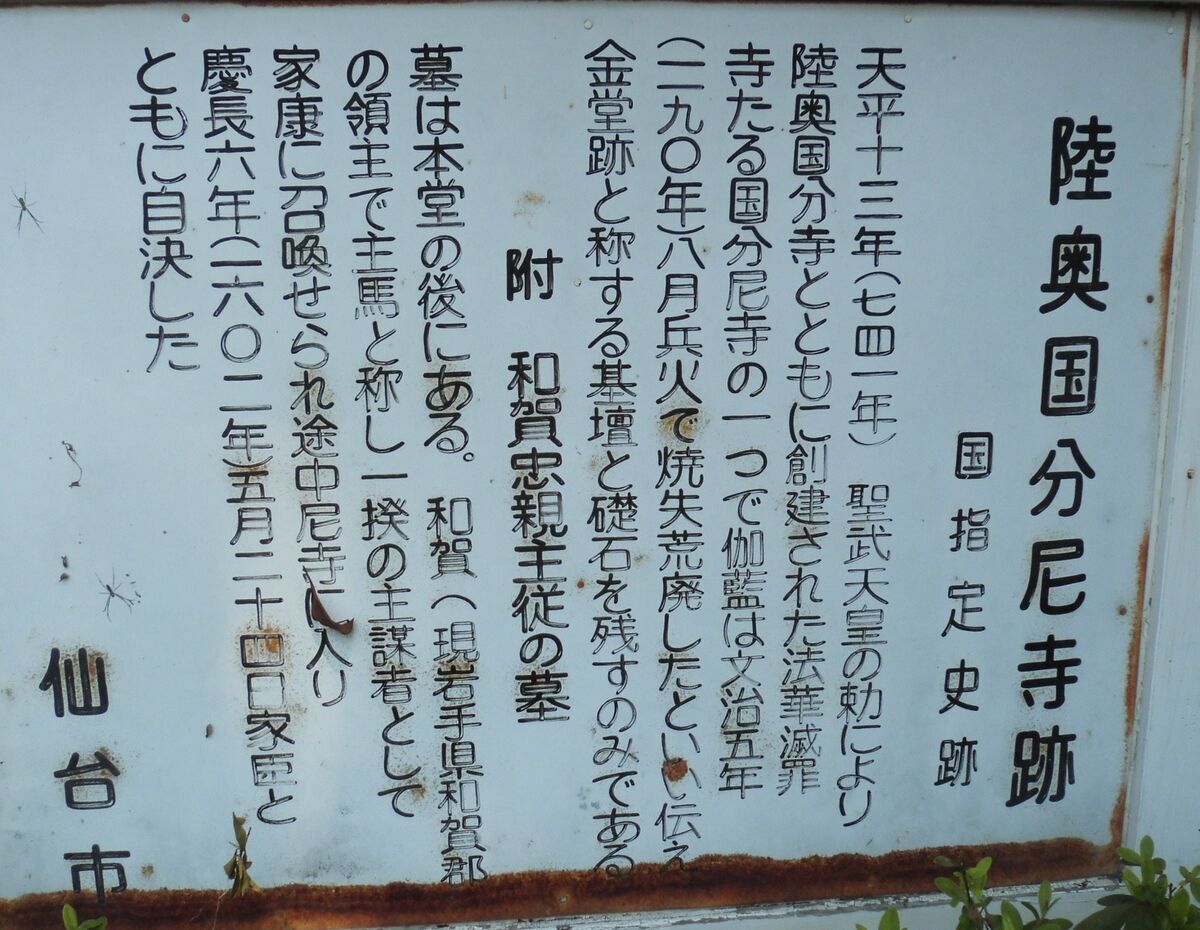 陸奥国分尼寺跡
国指定史跡
天平十三年(七四一年)　聖武天皇の勅により
陸奥国分寺とともに創建された法華滅罪
寺たる国分尼寺の一つで伽藍は文治五年
(一一九〇年)八月兵火で焼失荒廃したといい伝え
金堂跡と称する基壇と礎石を残すのみである
附　和賀忠親主従の墓
墓は本堂の後にある。　和賀(現岩手県和賀郡
の領主で主馬と称し一揆の主謀者として
家康に召喚せられ途中尼寺に入り
慶長六年(一六〇二年)五月二十四日家臣と
ともに自決した
仙台市